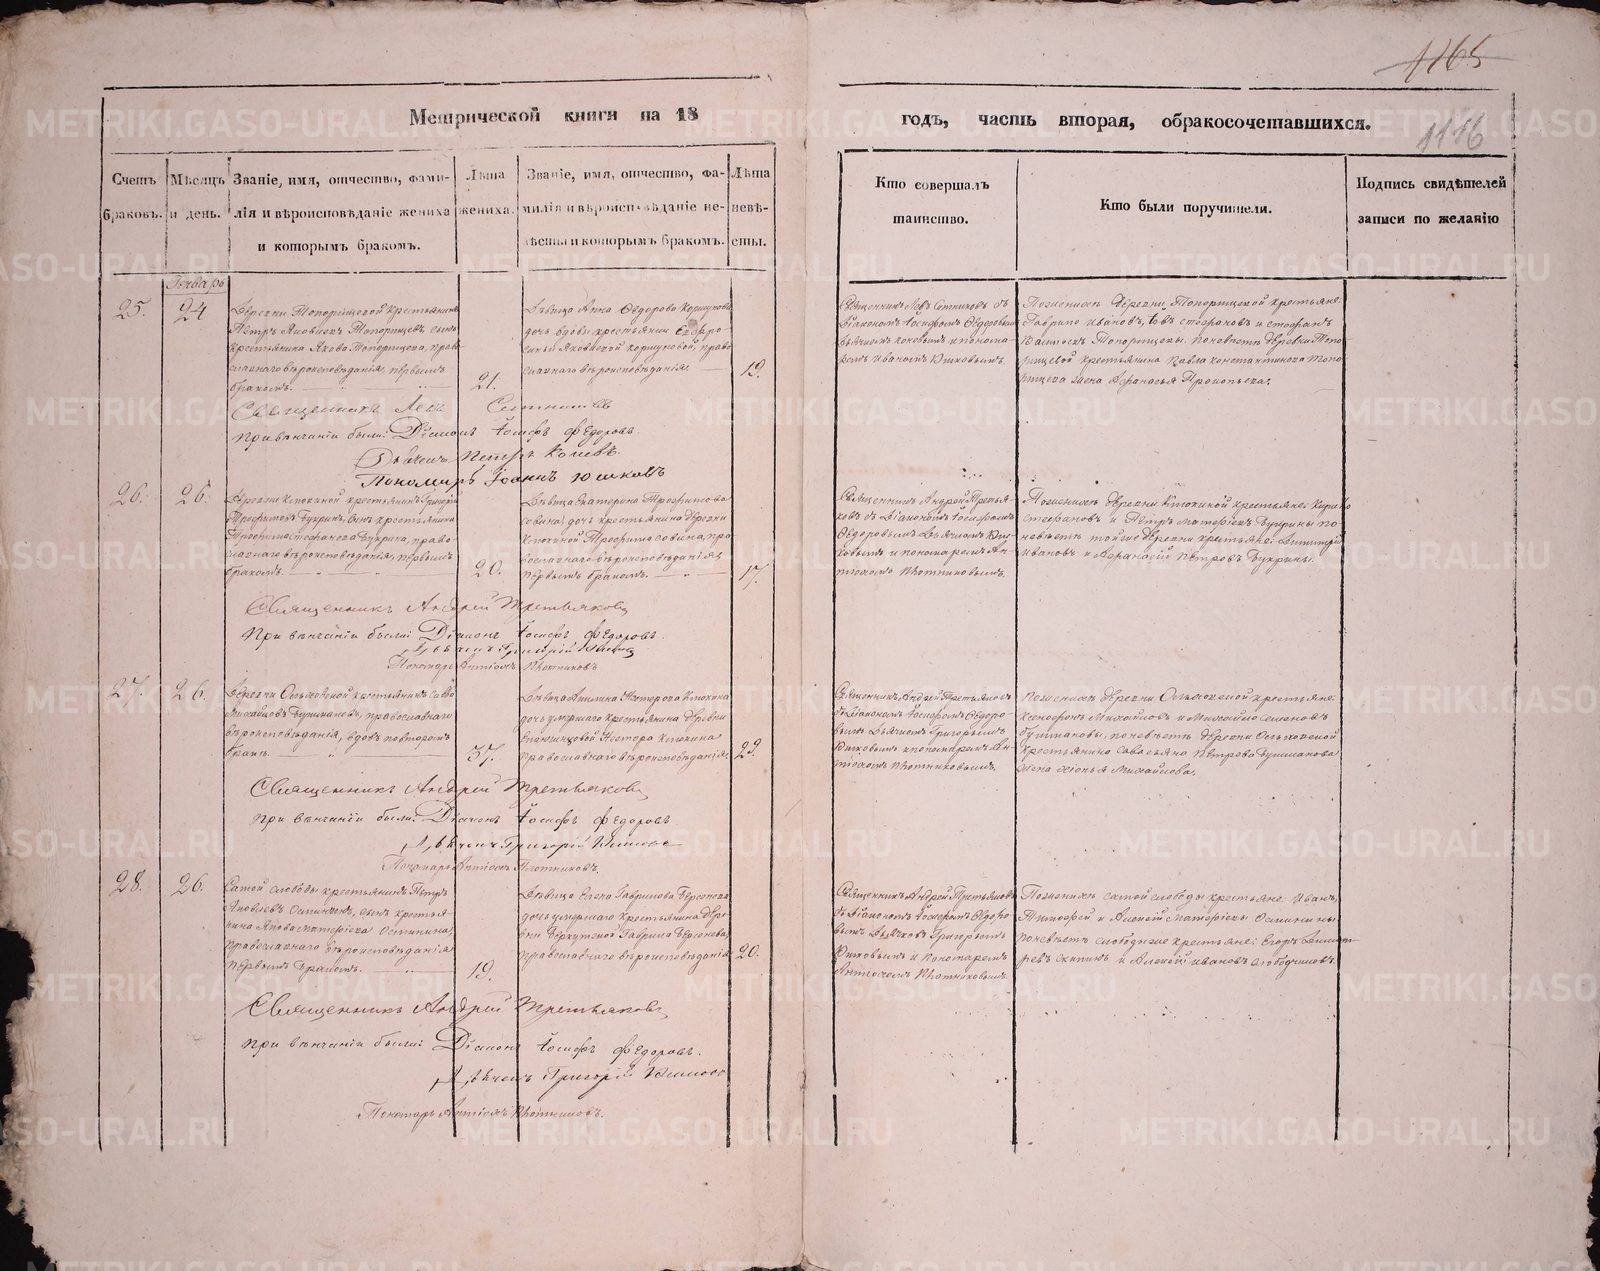 1165
1116
Метрической книги на 18
годъ, часть вторая, обракосочетавшихся.
Счетъ браковъ.
Мѣсяцъ и день.
Званіе, имя, отчество, фами-
лія и вѣроисповѣданіе жениха
и которымъ бракомъ.
Лѣта
жениха.
Званіе, имя, отчество, фа-
милія и вѣроисповѣданіе не-
вѣсты и которымъ бракомъ.
Лѣта
невѣ-
сты.
Кто совершалъ
таинство.
Кто были поручители.
Подпись свидѣтелей
записи по желанію
Январь
25.
24
Деревни Топорищевой крестьянинъ
Петръ Яковлевъ Топорищевъ, сынъ
крестьянина Якова Топорищева, право-
славнаго вѣроисповѣданія, первымъ
бракомъ.
21.
Дѣвица Анна Ѳедорова Коршунова
дочь вдовы крестьянки
Яковлевой Коршуновой, право
славнаго вѣроисповѣданія.
19.
Священникъ Левъ Сотниковъ съ
Діакономъ Іосифомъ Ѳедоровымъ
Поженихѣ деревни Топорищевой крестьяне:
Гаврило Ивановъ, Стефановъ и Стефанъ
Топорищевы. Поневѣстѣ деревни Топо
рищевой крестьянина Павла Константинова Топо
рищева жена Афанасья Прокопьева.
Священникъ Левъ Сотниковъ
При вѣнчаніи были: Діаконъ Іосифъ Ѳедоровъ.
Дьячекъ Петръ
Пономарь Іоаннъ Юшковъ
26.
26.
крестьянинъ Григорій
Трофимовъ Букринъ, сынъ крестьянина
Трофима Стефанова Букрина, право-
славнаго вѣроисповѣданія, первымъ
бракомъ.
20.
Дѣвица Екатерина Трофимова
дочь крестьянина деревни
Трофима Савина, пра
вославнаго вѣроисповѣданія
первымъ бракомъ.
17.
Священникъ Андрей Третья-
ковъ съ Діакономъ Іосифомъ
Ѳедоровымъ Дьячкомъ
и пономаремъ Ан-
тіохомъ Плотниковымъ.
Поженихѣ деревни крестьяне: Кирило
Стефановъ и Петръ Матфіевъ Букрины по
невѣстѣ той же деревни крестьяне: Дмитрій
Ивановъ и Афанасій Петровъ Букрины.
Священникъ Андрей Третьяковъ
При вѣнчаніи были: Діаконъ Іосифъ Ѳедоровъ.
Дьячекъ Григорій
Пономарь Антіохъ Плотниковъ
27.
26.
Деревни Ольховской крестьянинъ Савва
Михайловъ православнаго
вѣроисповѣданія, вдовъ повторомъ
бракѣ.
37.
Дѣвица Акилина Нестерова Клюкина
дочь умершаго крестьянина деревни
Нестора Клюкина
православнаго вѣроисповѣданія.
29.
Священникъ Андрей Третьяковъ
съ Діакономъ Іосифомъ Ѳедоро-
вымъ Дьячкомъ Григорьемъ
и пономаремъ Ан-
тіохомъ Плотниковымъ.
Поженихѣ деревни Ольховской крестьяне:
Ксенофонъ Михайловъ и Михайло Семеновъ
поневѣстѣ деревни Ольховской
крестьянина Савельяна Петрова
жена Хіонья Михайлова.
Священникъ Андрей Третьяковъ
При вѣнчаніи были: Діаконъ Іосифъ Ѳедоровъ.
Дьячекъ Григорій
Пономарь Антіохъ Плотниковъ.
28.
26.
Самой слободы крестьянинъ Петръ
Яковлевъ Осининъ, сынъ крестья-
нина Якова Матфіева Осинина,
православнаго вѣроисповѣданія
первымъ бракомъ.
19.
Дѣвица Елена Гаврилова Берсенева
дочь умершаго крестьянина дере-
вни Беркутской Гаврила Берсенева,
православнаго вѣроисповѣданія.
20.
Священникъ Андрей Третьяковъ
съ Діакономъ Іосифомъ Ѳедоро-
вымъ Дьячковъ Григорьемъ
и пономаремъ
Антіохомъ Плотниковымъ.
Поженихѣ самой слободы крестьяне: Иванъ,
Тимофей и Алексѣй Матфіевы Осинины
поневѣстѣ слободские крестьяне: Егоръ Дмит-
ревъ и Алексѣй Ивановъ Слободчиковъ.
Священникъ Андрей Третьяковъ
При вѣнчаніи были: Діаконъ Іосифъ Ѳедоровъ.
Дьячекъ Григорій
Пономарь Антіохъ Плотниковъ.
METRIKI.GASO-URAL.RU